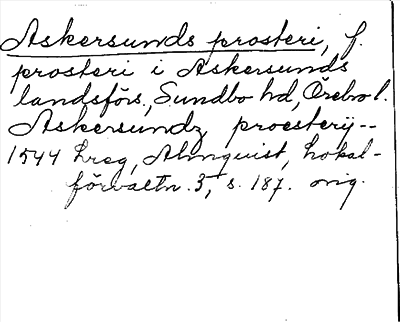 Askersunds prosteri, f.
prosteri i Askersunds
landsförs., Sundbo hd, Örebro l.
Askersundz proesterij--
1544 Lreg, Almquist, Lokal-
förvaltn. 3, s. 187. orig.